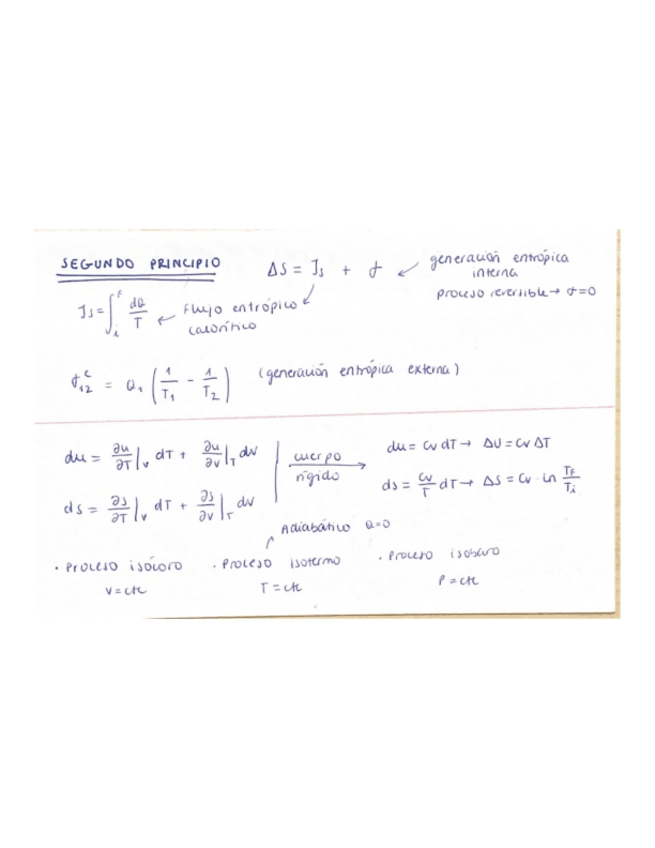 SEGUNDO PRINCIPIO
ΔS = Js + σ ↙ generación entrópica interna
proceso reversible → σ=0
Js = ∫_i^F dQ/T ← Flujo entrópico calorítico
σ₁₂^e = Q₁ (1/T₁ - 1/T₂) (generación entrópica externa)
du = ∂u/∂T|_v dT + ∂u/∂v|_T dv
ds = ∂s/∂T|_v dT + ∂s/∂v|_T dv
cuerpo rígido →
du = Cv dT → ΔU = Cv ΔT
ds = Cv/T dT → ΔS = Cv · ln T_F/T_i
Adiabático Q=0
· Proceso isócoro · Proceso isotermo · Proceso isobaro
V = cte T = cte P = cte